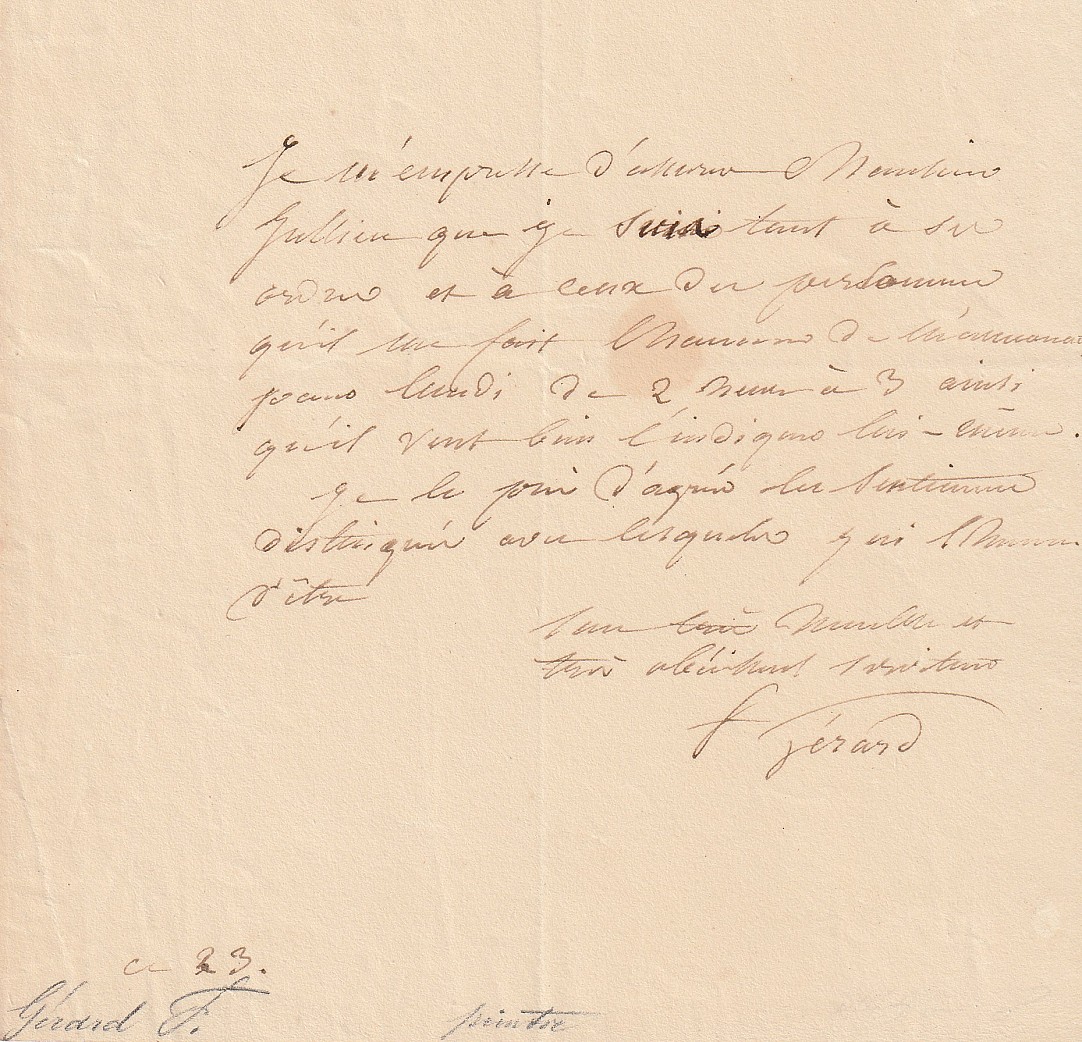 Je m'empresse d'assurer Monsieur
Jullien que je suis tout à ses
ordres et à ceux des personnes
qu'il me fait l'honneur de m'annoncer
pour lundi de 2 heures à 3 ainsi
qu'il veut bien l'indiquer lui-même.
Je le prie d'agréer les sentimens
distingués avec lesquels j'ai l'honneur
d'être
son humble et
très obéissant serviteur
F Gérard
ce 23.
Gérard F. peintre